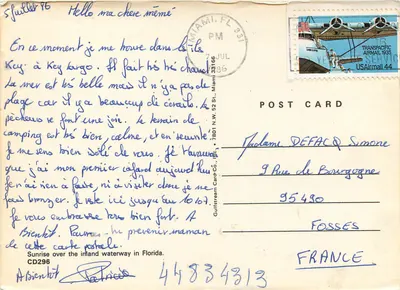 5 juillet 86
Hello ma chère mémé
En ce moment je me trouve dans le île
Key à Key Largo. Il fait très très chaud
La mer est très belle mais il n'ya pas de
plage car il y a beaucoup de
se font une joie. Le terrain de
camping est très bien, calme, et en sécurité
Je me sens bien de vous. Je t'avoue
que j'ai mon premier cafard aujourd'hui
Je n'ai rien à faire, ni à visiter donc je me
fais bronzer. Je reste ici jusqu'au 10/07
Je vous embrasse tous bien fort. A
Bientôt. Patricia. tu préviens maman
de cette carte postale.
Sunrise over the inland waterway in Florida.
CD296
A Bientôt Patricia
Gulfstream Card Co., Inc. • 7801 N.W. 52 St., Miami 33166
MIAMI, FL 331
PM
JUL
1986
TRANSPACIFIC
AIRMAIL 1935
USAirmail 44
POST CARD
Madame DEFACQ Simone
9 Rue de Bourgogne
95490
FOSSES
FRANCE
44834313